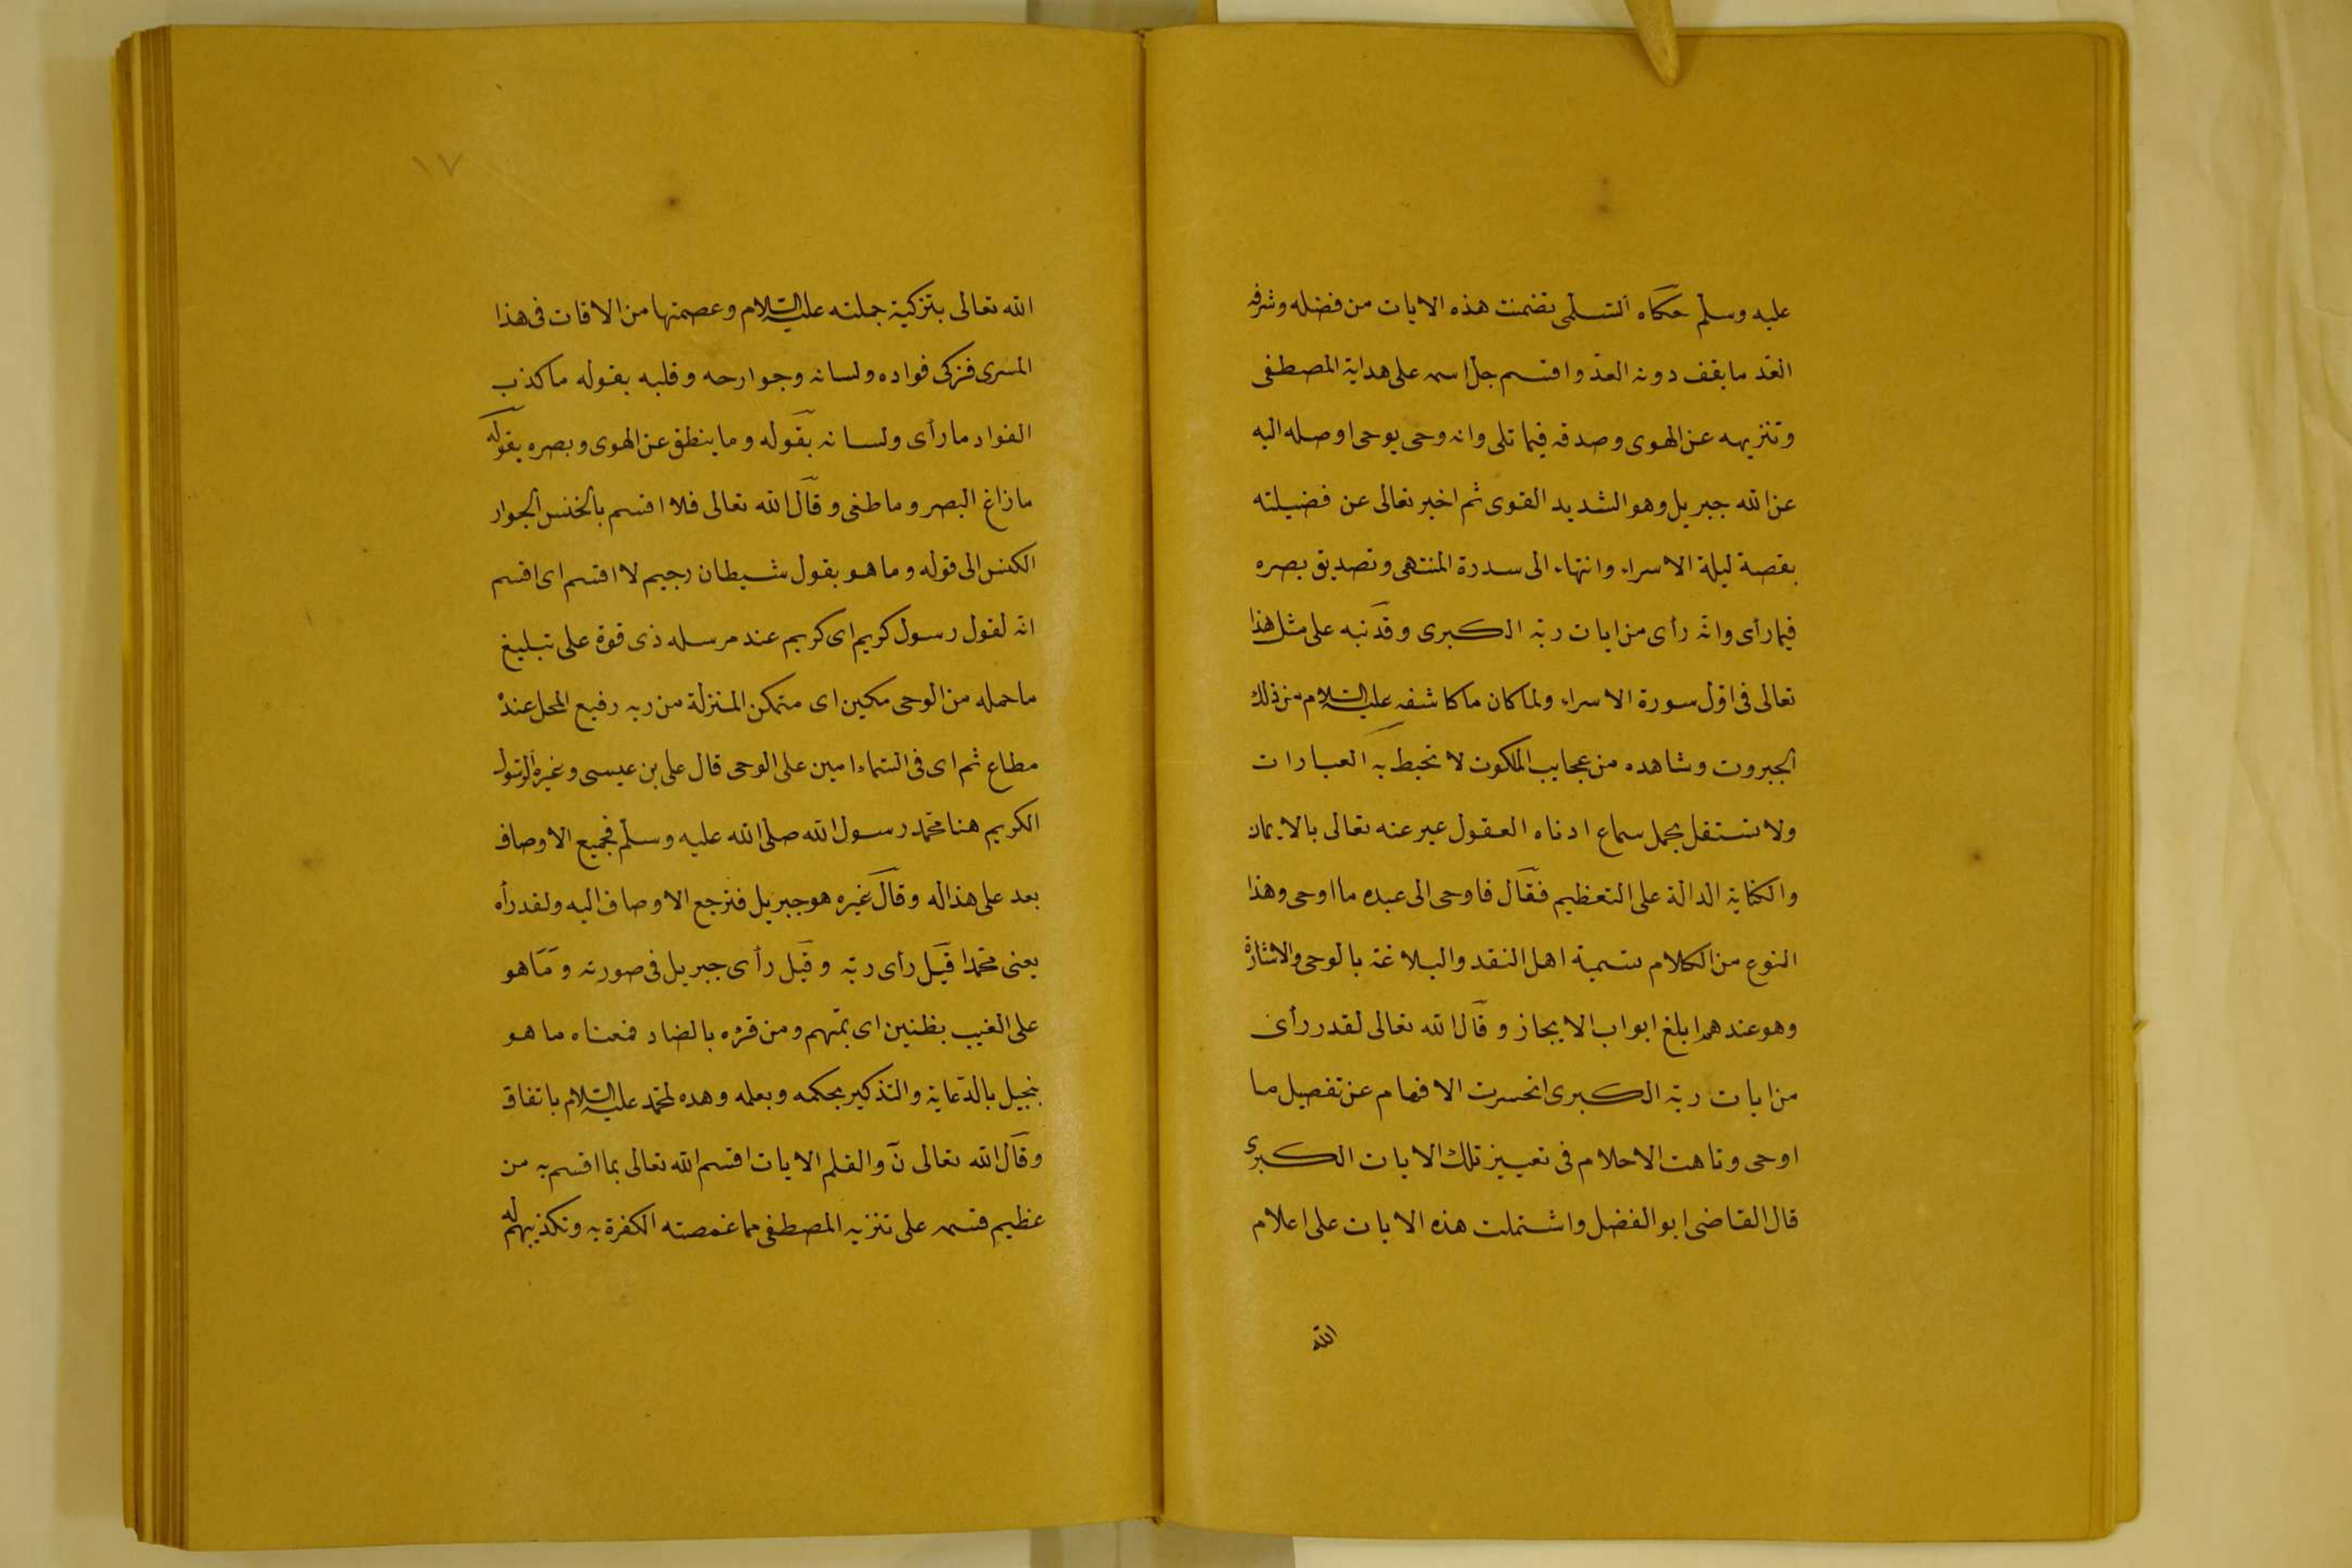 عليه وسلم حكاه السلمى تضمنت هذه الايات من فضله وشرفه
العد ما يقف دونه العد واقسم جل اسمه على هداية المصطفى
وتنزيهه عن الهوى وصدقه فيما تلى وانه وحى يوحى اوصله اليه
عن الله جبريل وهو الشديد القوى ثم اخبر تعالى عن فضيلته
بقصة ليلة الاسراء وانتهاء الى سدرة المنتهى وتصديق بصره
فيما رأى وانه رأى من ايات ربه الكبرى وقد نبه على مثل هذا
تعالى فى اول سورة الاسراء ولما كان ما كاشفه عليه السلام من ذلك
الجبروت وشاهده من عجايب الملكوت لا تحيط به العبارات
ولا تستقل بحمل سماع ادناه العقول عبر عنه تعالى بالايماء
والكناية الدالة على التعظيم فقال فاوحى الى عبده ما اوحى وهذا
النوع من الكلام تسمية اهل النقد والبلاغة بالوحى والاشارة
وهو عندهم ابلغ ابواب الايجاز وقال الله تعالى لقد رأى
من ايات ربه الكبرى انحسرت الافهام عن تفصيل ما
اوحى وتاهت الاحلام فى تعيين تلك الايات الكبرى
قال القاضى ابو الفضل واشتملت هذه الايات على اعلام
الله
١٧
الله تعالى بتزكية جملته عليه السلام وعصمتها من الافات فى هذا
المسرى فزكى فواده ولسانه وجوارحه وقلبه بقوله ما كذب
الفواد ما رأى ولسانه بقوله وما ينطق عن الهوى وبصره بقوله
ما زاغ البصر وما طغى وقال الله تعالى فلا اقسم بالخنس الجوار
الكنس الى قوله وما هو بقول شيطان رجيم لا اقسم اى اقسم
انه لقول رسول كريم اى كريم عند مرسله ذى قوة على تبليغ
ما حمله من الوحى مكين اى متمكن المنزلة من ربه رفيع المحل عنده
مطاع ثم اى فى السماء امين على الوحى قال على بن عيسى وغيره الرسول
الكريم هنا محمد رسول الله صلى الله عليه وسلم فجميع الاوصاف
بعد على هذا له وقال غيره هو جبريل فترجع الاوصاف اليه ولقد رأه
يعنى محمدا قيل رأى ربه وقيل رأى جبريل فى صورته وما هو
على الغيب بظنين اى بمتهم ومن قرءه بالضاد فمعناه ما هو
ببخيل بالدعاية والتذكير بحكمه وبعلمه وهده لمحمد عليه السلام باتفاق
وقال الله تعالى ن والقلم الايات اقسم الله تعالى بما اقسم به من
عظيم قسمه على تنزيه المصطفى مما غمصته الكفرة به وتكذيبهم له